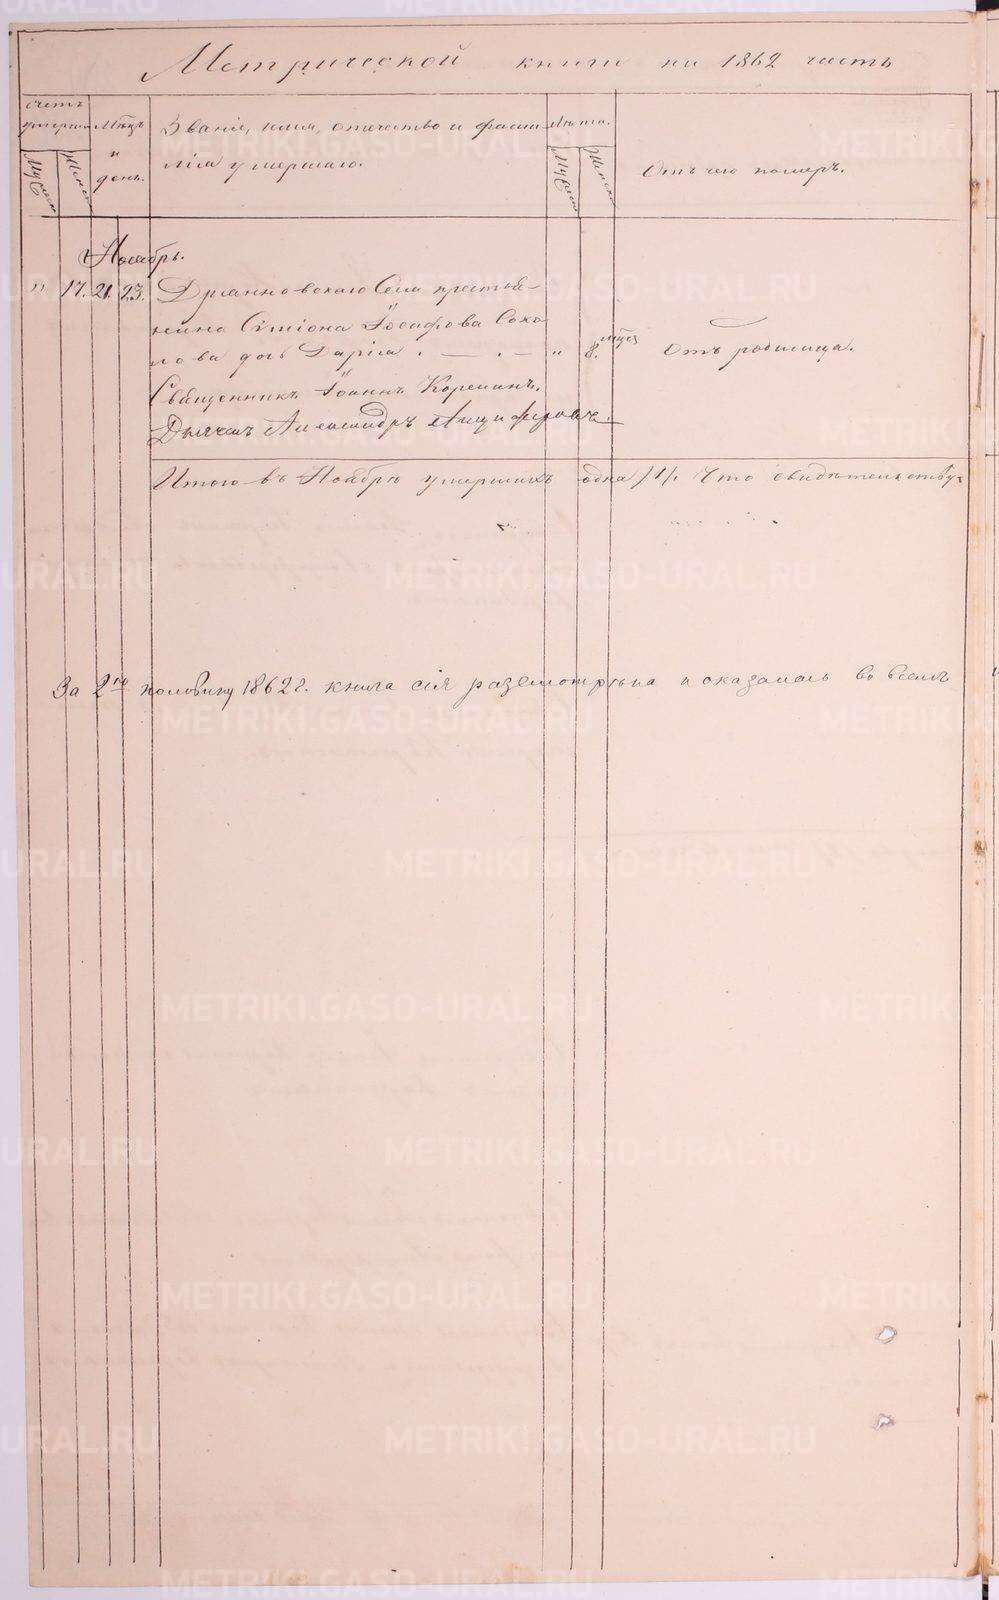 Метрической книги на 1862 часть
Счетъ умерших
Мѣсяцъ и день.
Званіе, имя, отечество и фами
лія умершаго.
Лѣта.
Отъ чего померъ.
Муж
Женск
Муж
Женск
Ноябрь.
" 17. 21. 23. Села крестья-
нина Симіона Іосафова Соко
лова дочь Дарія . — . — " 8. мѣсяц Отъ родимца.
Священникъ Іоаннъ
Дьячекъ Александръ
Итого въ Ноябрѣ умершихъ одна /1/. Что свидѣтельству-
За 2ю половину 1862 г. книга сія разсмотрѣна и оказалась во всемъ
METRIKI.GASO-URAL.RU